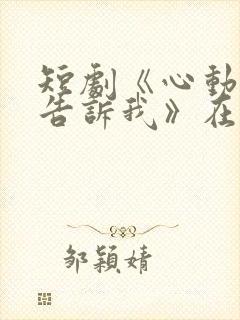 短劇《心動
告訴我》在
鄒穎婧